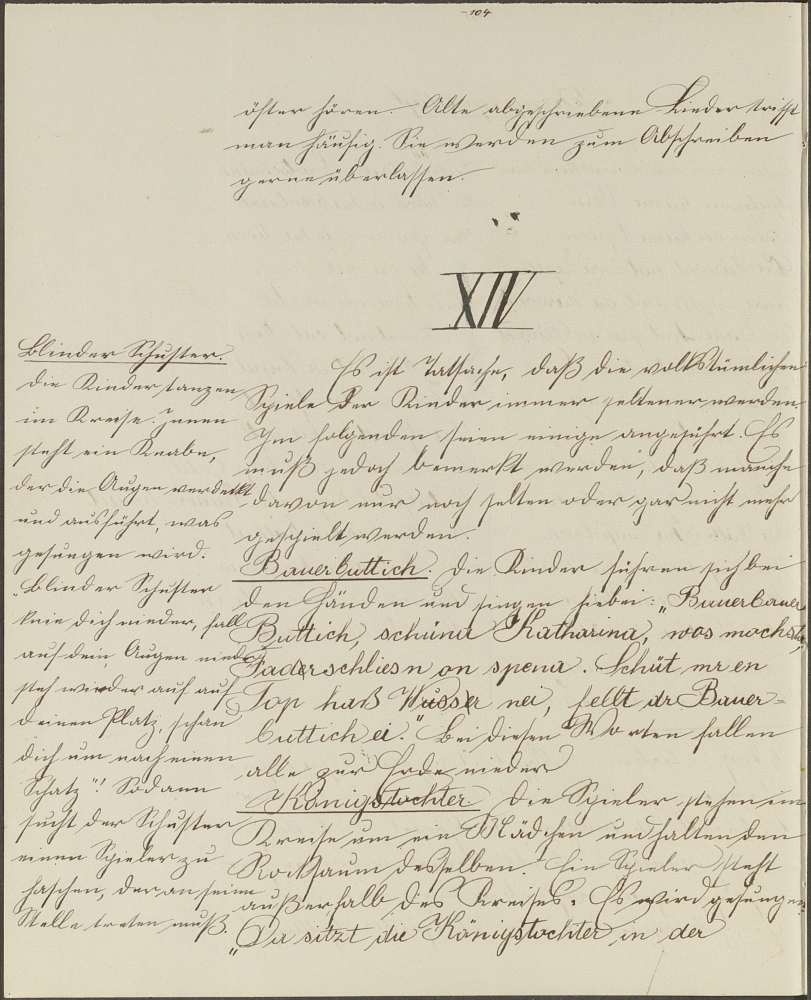 -104
öfter hören. Alte abgeschriebene Lieder trifft
man häufig. Sie werden zum Abschreiben
gerne überlassen.
XIV
Es ist Tatsache, daß die volkstümlichen
Spiele der Kinder immer seltener werden.
Im folgenden seien einige angeführt. Es
muß jedoch bemerkt werden, daß manche
davon nur noch selten oder gar nicht mehr
gespielt werden.
Bauerbuttich. Die Kinder führen sich bei
den Händen und singen hiebei: "Bauerbauer
Buttich, schüna Katharina, wos mochst,
Fader schliesn on spena. Schüt mr en
Top haß Wasser nei, fellt dr Bauer-
buttich ei." Bei diesen Worten fallen
alle zur Erde nieder
Königstochter Die Spieler stehen im
Kreise um ein Mädchen und halten den
Rocksaum desselben. Ein Spieler steht
außerhalb des Kreises. Es wird gesungen
"Da sitzt die Königstochter in der
Blinder Schuster.
Die Kinder tanzen
im Kreise. Innen
steht ein Knabe,
der die Augen verdeckt
und ausführt, was
gesungen wird.
"Blinder Schuster
knie dich nieder, fall
auf dein Augen nieder
steh wieder auf auf
deinen Platz, schau
dich um nach einen
Schatz"! Sodann
sucht der Schuster
einen Spieler zu
haschen, der an seine
Stelle treten muß.